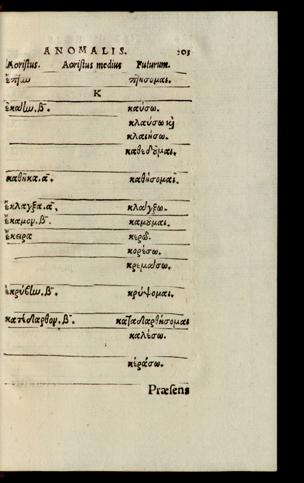 ANOMALIS. 203
Aoristus. Aoristus medius Futurum.
ἔπτlω πτήσομαι.
K
ἐκαίlω. β‾. καύσω.
κλαύσω κὶ
κλαιήσω.
καθεδοῦμαι.
καθῆκα. α‾. καθήσομαι.
ἔκλαγξα. α‾. κλάγξω.
ἔκαμον. β‾. καμοῦμαι.
ἔκειρα κερῶ.
κορέσω.
κρεμάσω.
ἐκρύβlω. β‾. κρύψομαι.
κατέδαρθον. β‾. καταδαρθήσομαι
καλέσω.
κεράσω.
Præsens